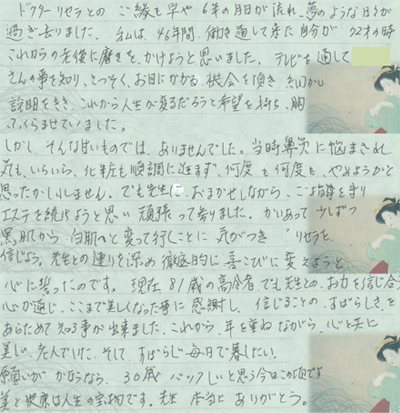 ドクターリセラとの ご縁も早や 6年の月日が流れ、夢のような日々が
過ぎ去りました。私は、46年間、働き通して来た自分が 72才の時
これからの老後に磨きを、かけようと思いました。テレビを通して
さんの事を知り、さっそく、お目にかかる機会を頂き 細かい
説明をきき、これから人生が変るだろうと希望を持ち、胸
ふくらませていました。
しかし、そんな甘いものでは、ありませんでした。当時鼻炎に悩まされ
気も、いらいら、化粧も順調に進まず、何度も何度も、やめようかと
思ったかしれません。でも先生に、おまかせしながら、ご指導を守り
エステを続けようと思い 頑張って参りました。かいあって少しずつ
黒肌から 白肌へと変って行くことに 気がつき リセラを
信じよう。先生との連りを深め徹底的に 喜こびに変えようと
心に誓ったのです。現在 81歳の高令者でも先生との、お力を信じ合
心が通じ、ここまで美しくなった事に感謝し、信じることの、すばらしさを
あらためて知る事が出来ました。これから、年を重ねながら、心と共に
美しい老人でいたい、そして、すばらしい毎日で暮したい。
願いが かなうなら、30歳 バックしたいと思う今日この頃です
美と健康は人生の宝物です。先生 本当に ありがとう。